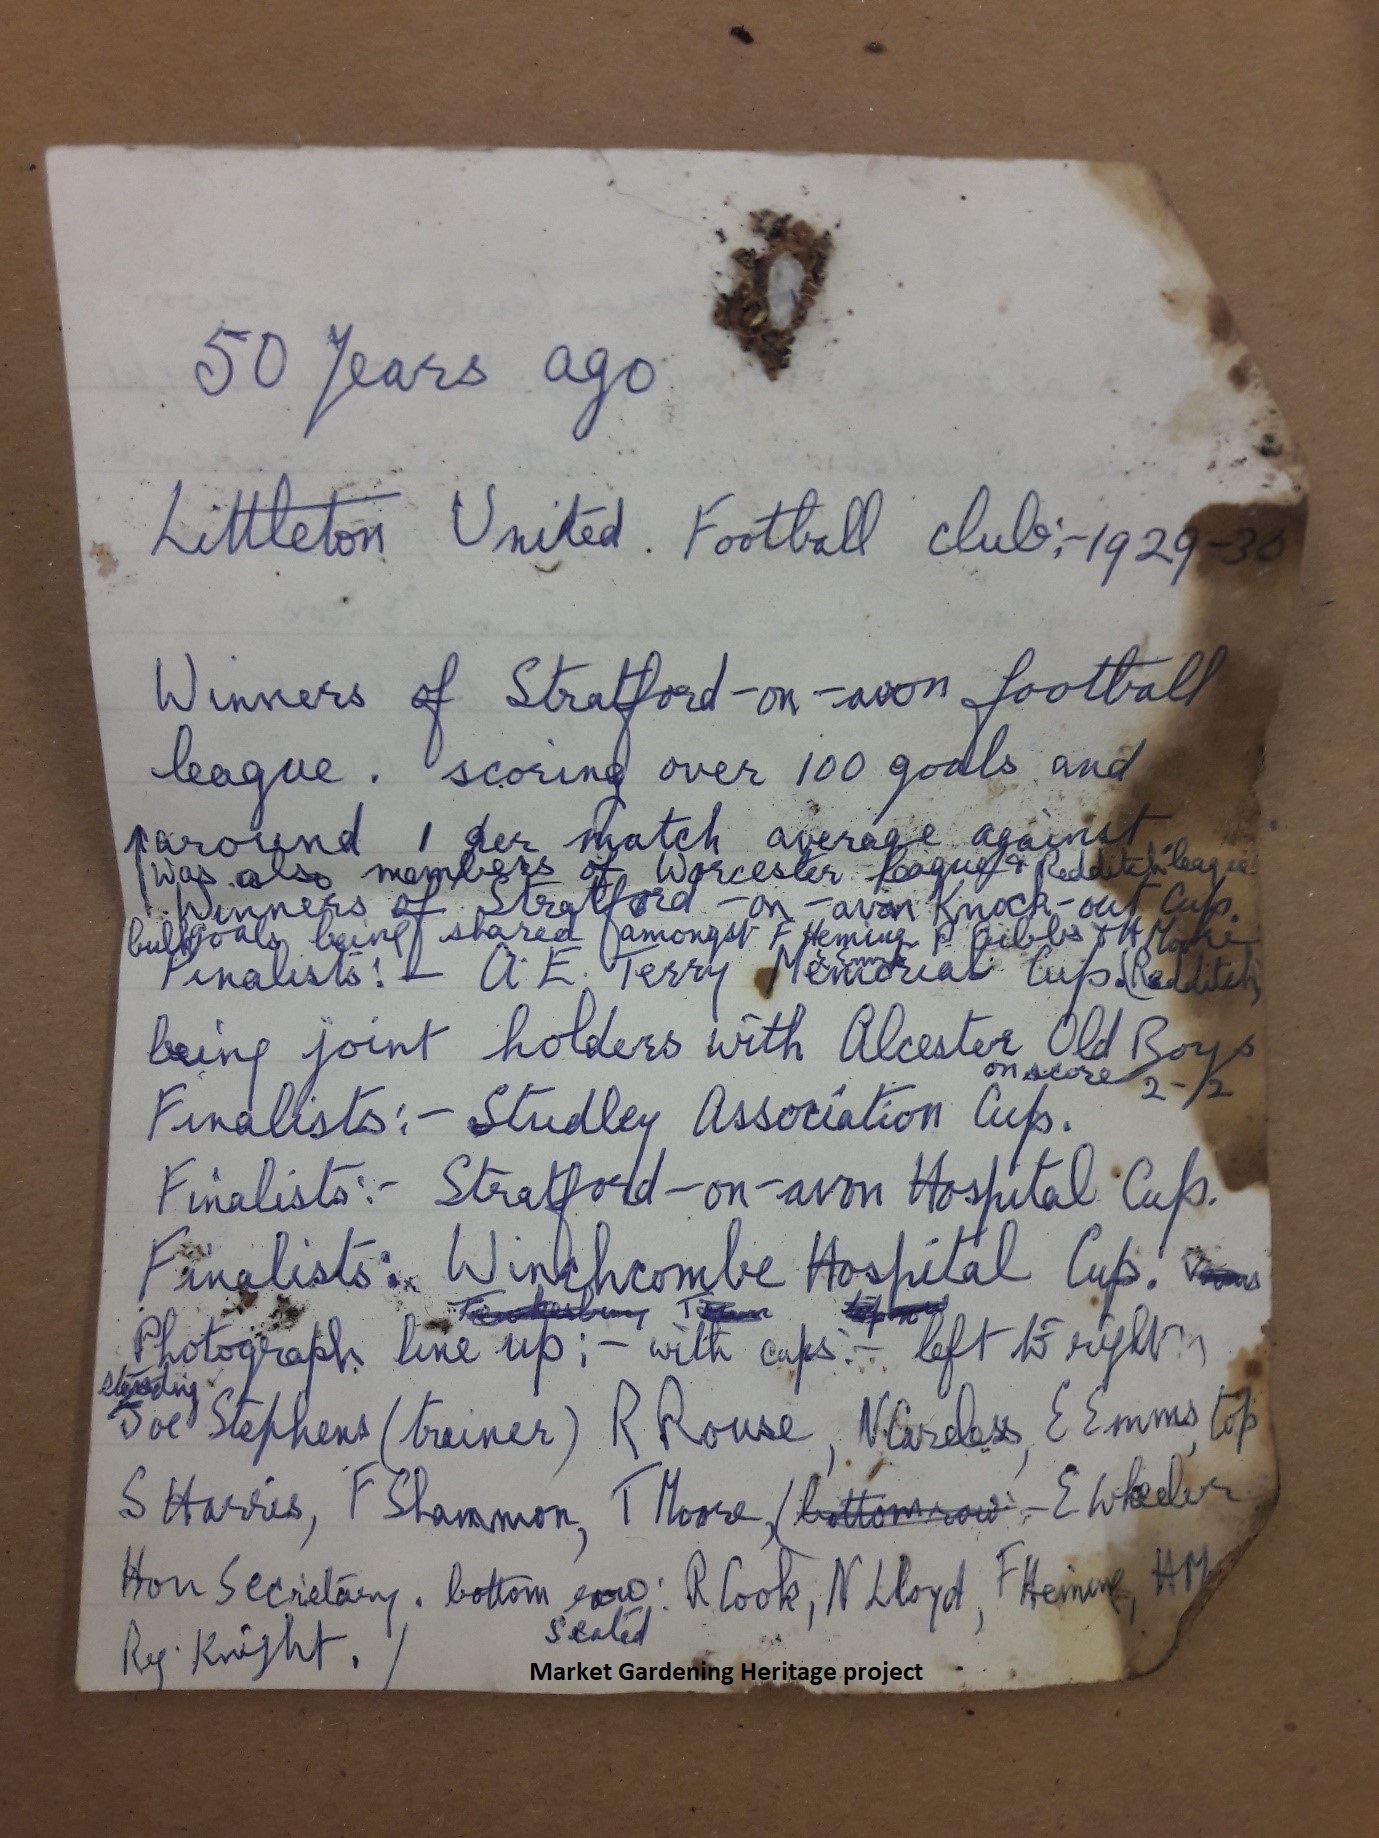 50 Years ago
Littleton United. Football club:-1929-30
Winners of Stratford-on-avon football
league. scoring over 100 goals and
around 1 per match average against
(was also members of Worcester league & Redditch league
Winners of Stratford-on-avon Knock-out Cup.
bulk goals being shared amongst F Heming P Gibbs & H Moore
Finalists:- A.E. Terry Memorial Cup. (Redditch)
being joint holders with Alcester Old Boys
on score 2-2
Finalists:- Studley Association Cup.
Finalists:- Stratford-on-avon Hospital Cup.
Finalists:. Winchcombe Hospital Cup.
Tewkesbury Town
Photograph line up:- with cups:- left to right
standing
Joe Stephens (trainer) R Rouse, N Careless, E Emms, top
S Harris, F Shammon, T Moore, (bottom row:- E Wheeler
Hon Secretary. bottom row: R Cook, N Lloyd, F Heming, H M
seated
Reg. Knight. /
Market Gardening Heritage project